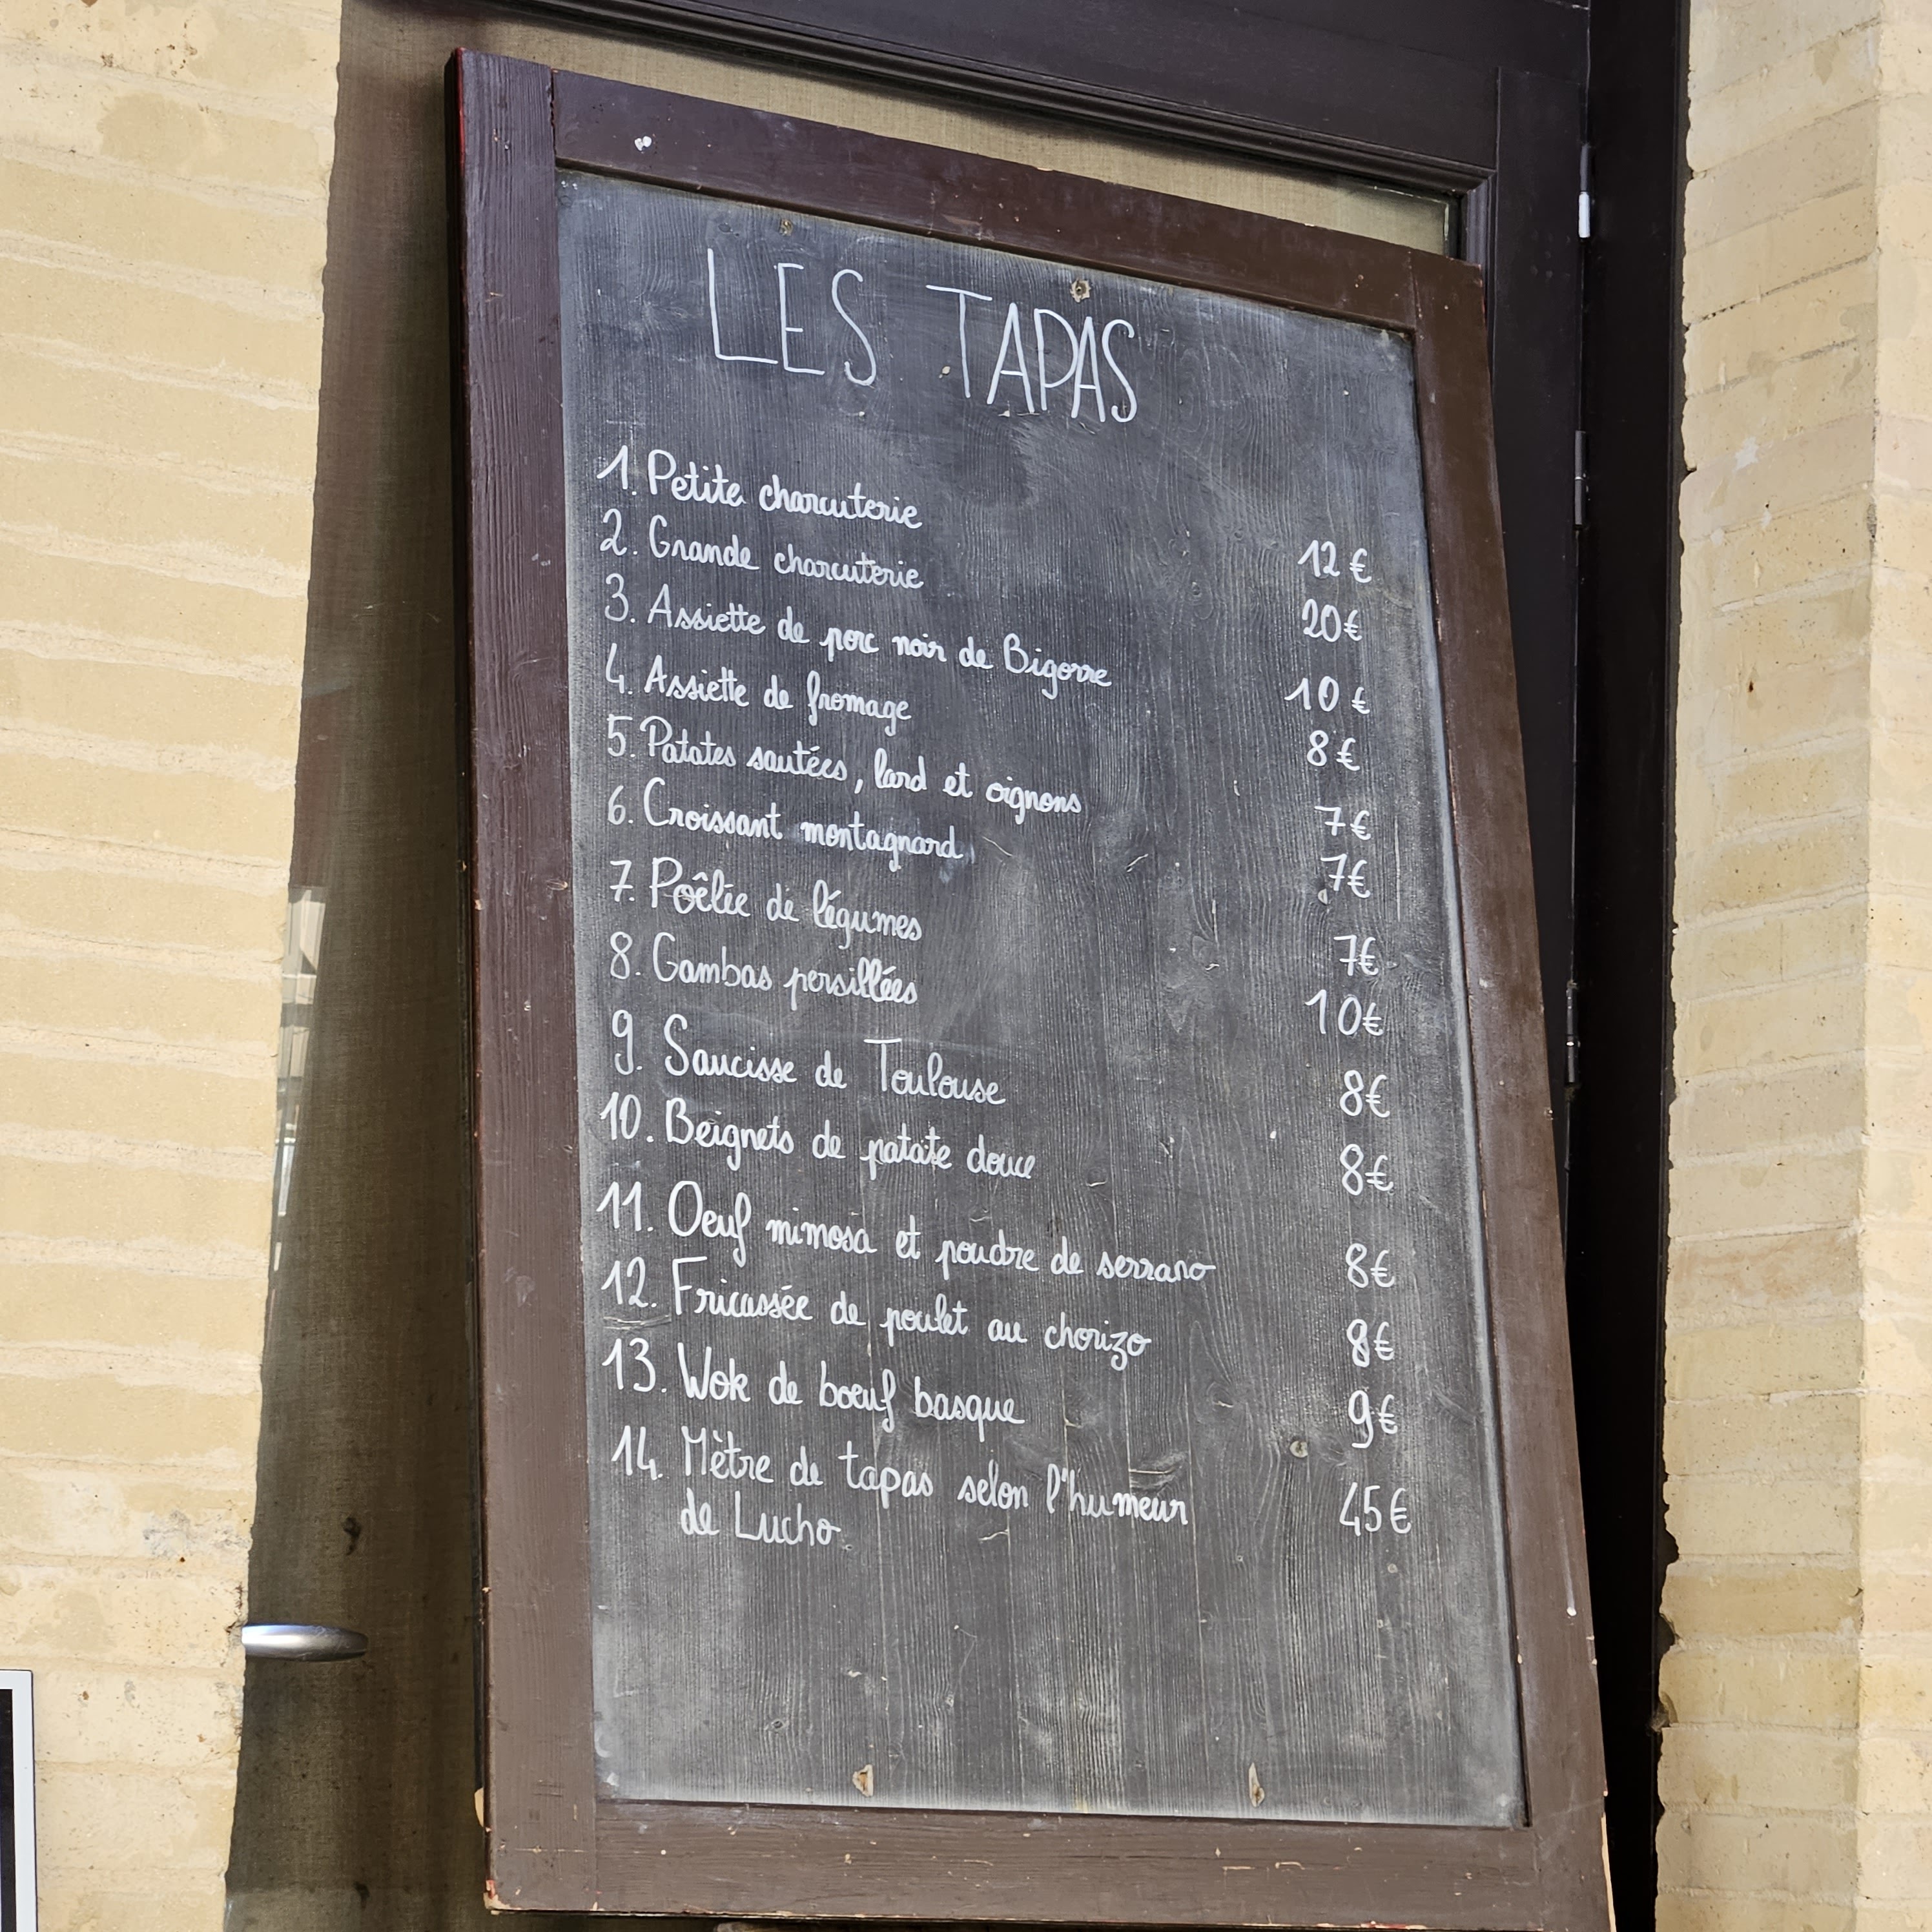 LES TAPAS
1. Petite charcuterie 12€
2. Grande charcuterie 20€
3. Assiette de porc noir de Bigorre 10€
4. Assiette de fromage 8€
5. Patates sautées, lard et oignons 7€
6. Croissant montagnard 7€
7. Poêlée de légumes 7€
8. Gambas persillées 10€
9. Saucisse de Toulouse 8€
10. Beignets de patate douce 8€
11. Oeuf mimosa et poudre de serrano 8€
12. Fricassée de poulet au chorizo 8€
13. Wok de boeuf basque 9€
14. Mètre de tapas selon l'humeur 45€
de Lucho